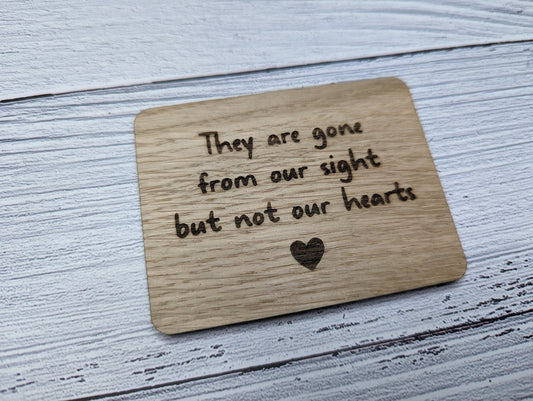 They are gone
from our sight
but not our hearts